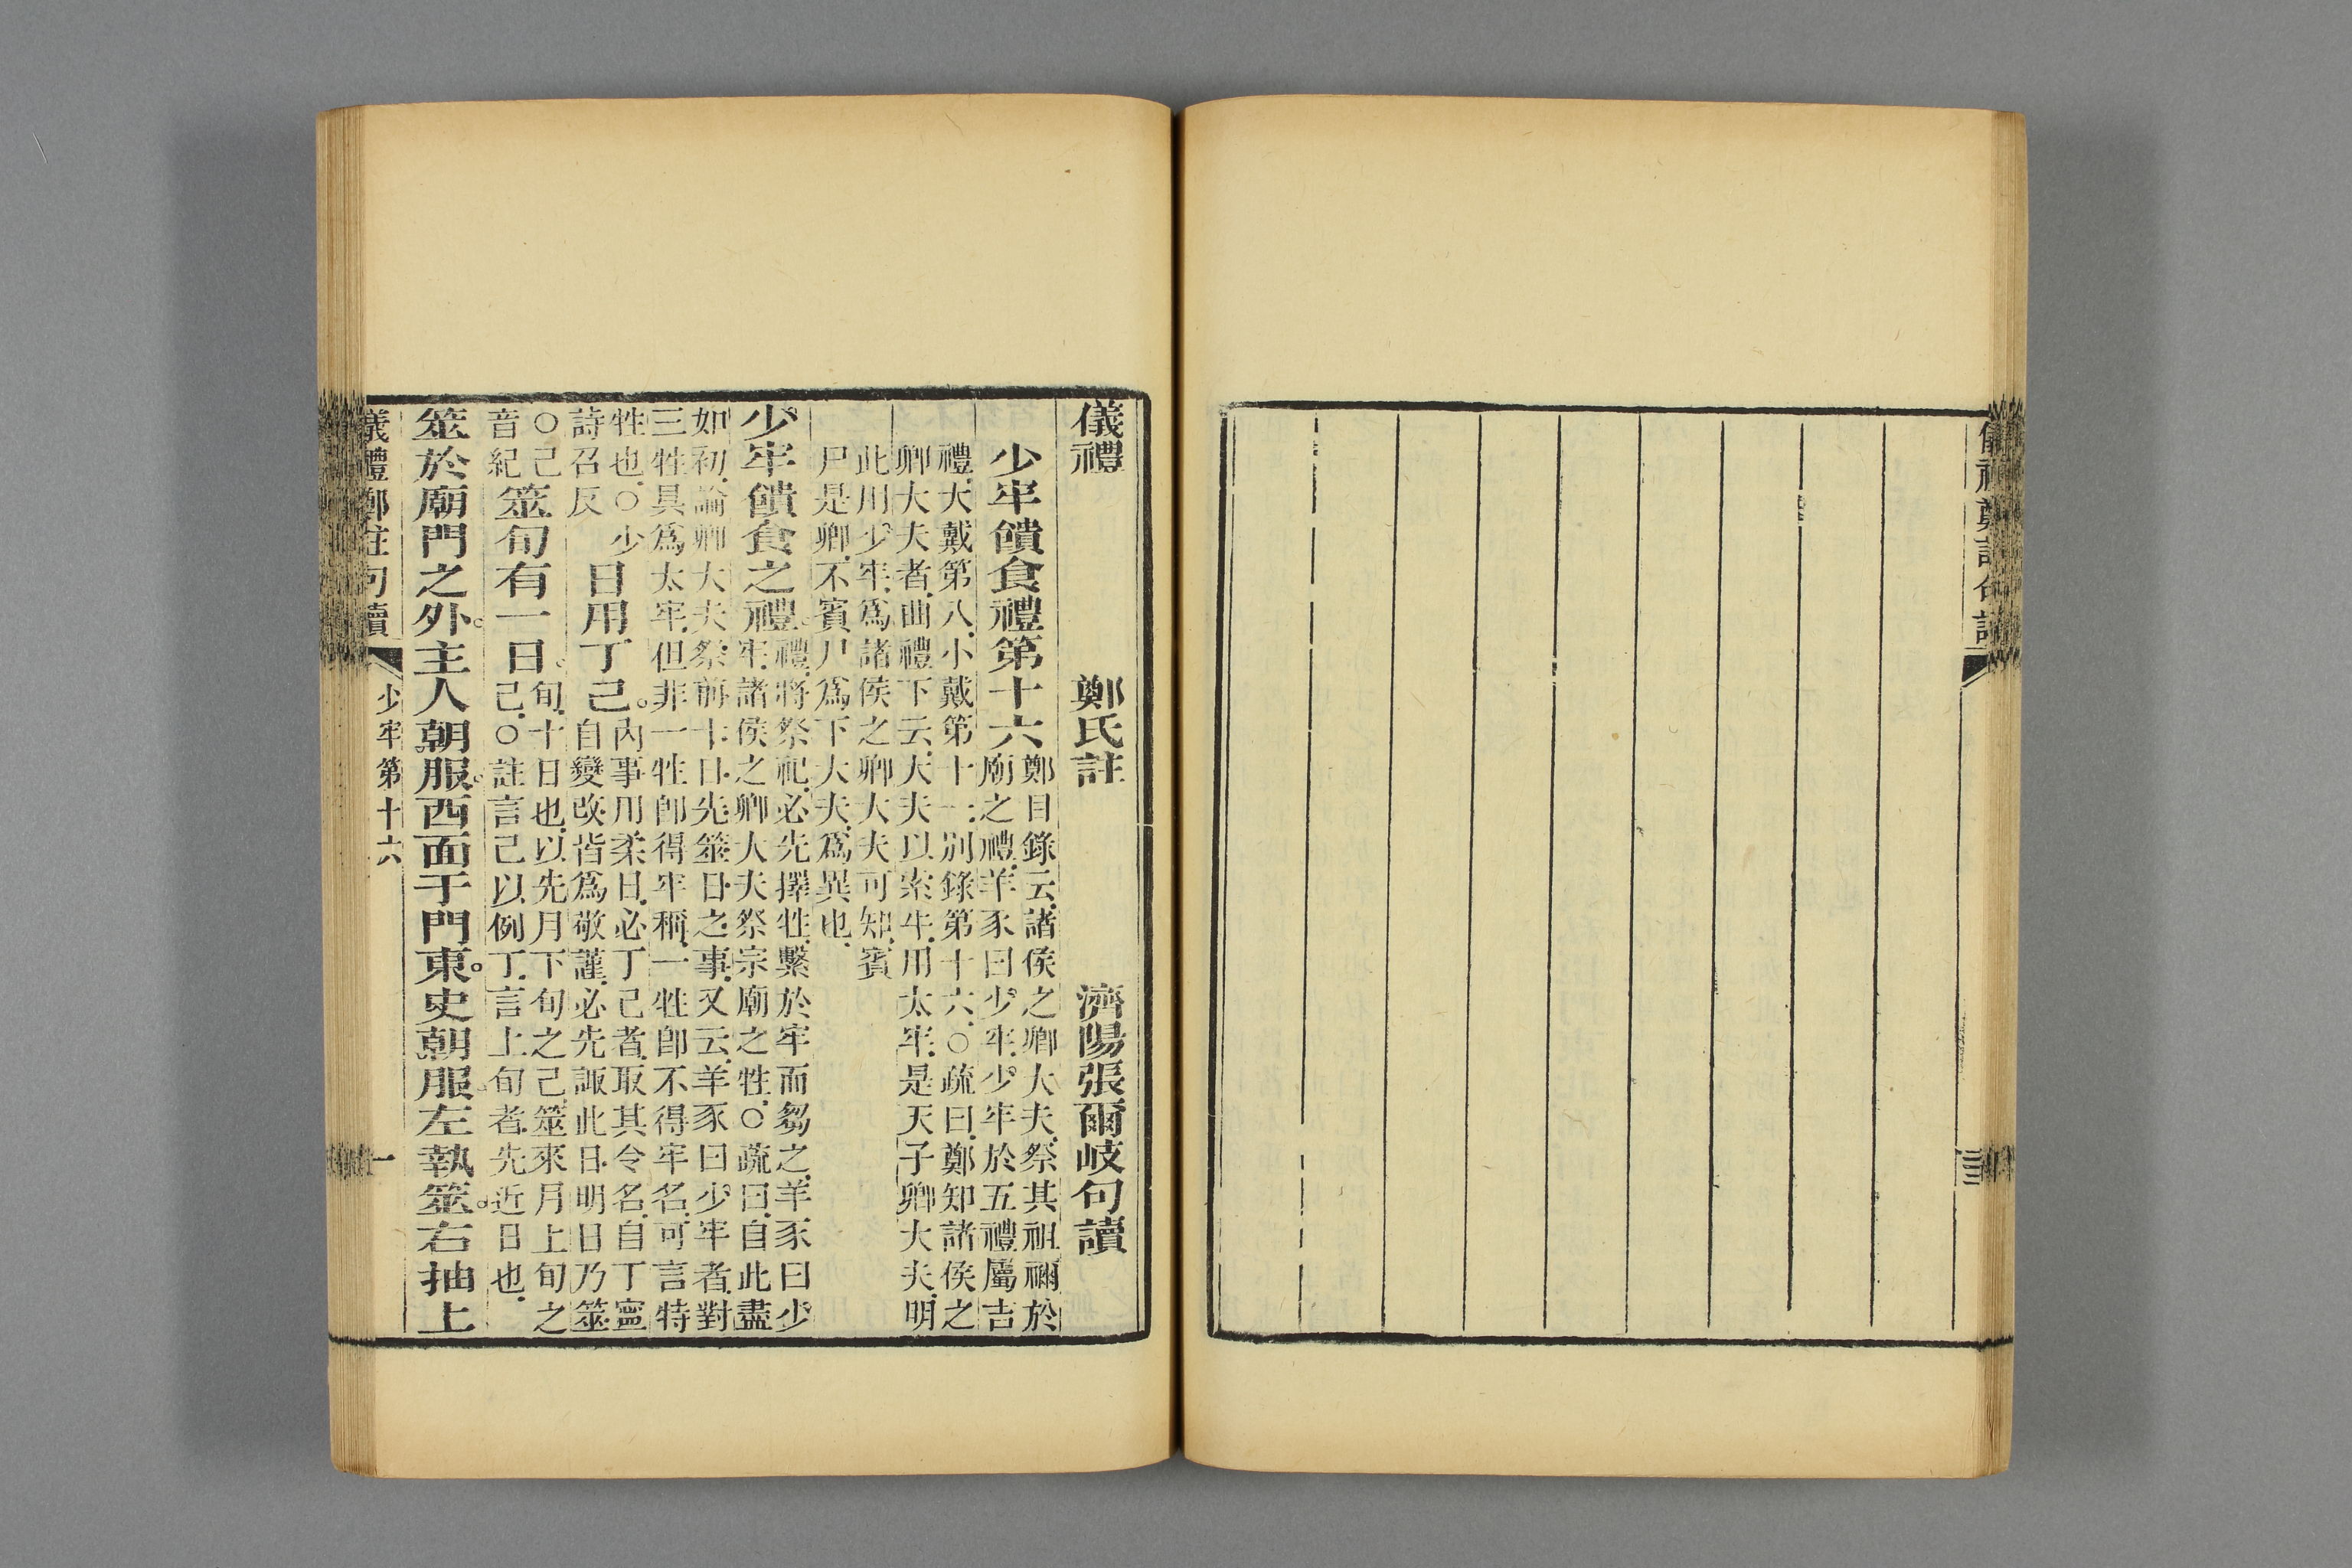 儀禮鄭註句讀
三
儀禮 鄭氏註 濟陽張爾岐句讀
少牢饋食禮第十六
鄭目錄云諸侯之卿大夫祭其祖禰於
廟之禮羊豕曰少牢少牢於五禮屬吉
禮大戴第八小戴第十一別錄第十六○疏曰鄭知諸侯之
卿大夫者曲禮下云大夫以索牛用太牢是天子卿大夫明
此用少牢爲諸侯之卿大夫可知賓
尸是卿不賓尸爲下大夫爲異也
少牢饋食之禮
禮將祭祀必先擇牲繫於牢而芻之羊豕曰少
牢諸侯之卿大夫祭宗廟之牲○疏曰自此盡
如初論卿大夫祭前十日先筮日之事又云羊豕曰少牢者對
三牲具爲太牢但非一牲卽得牢稱一牲卽不得牢名可言特
牲也○少
詩召反
日用丁己
內事用柔日必丁己者取其令名自丁寧
自變改皆爲敬謹必先諏此日明日乃筮
○己
音紀
筮旬有一日
旬十日也以先月下旬之己筮來月上旬之
己○註言己以例丁言上旬者先近日也
筮於廟門之外主人朝服西面于門東史朝服左執筮右抽上
儀禮鄭註句讀 少牢第十六 一